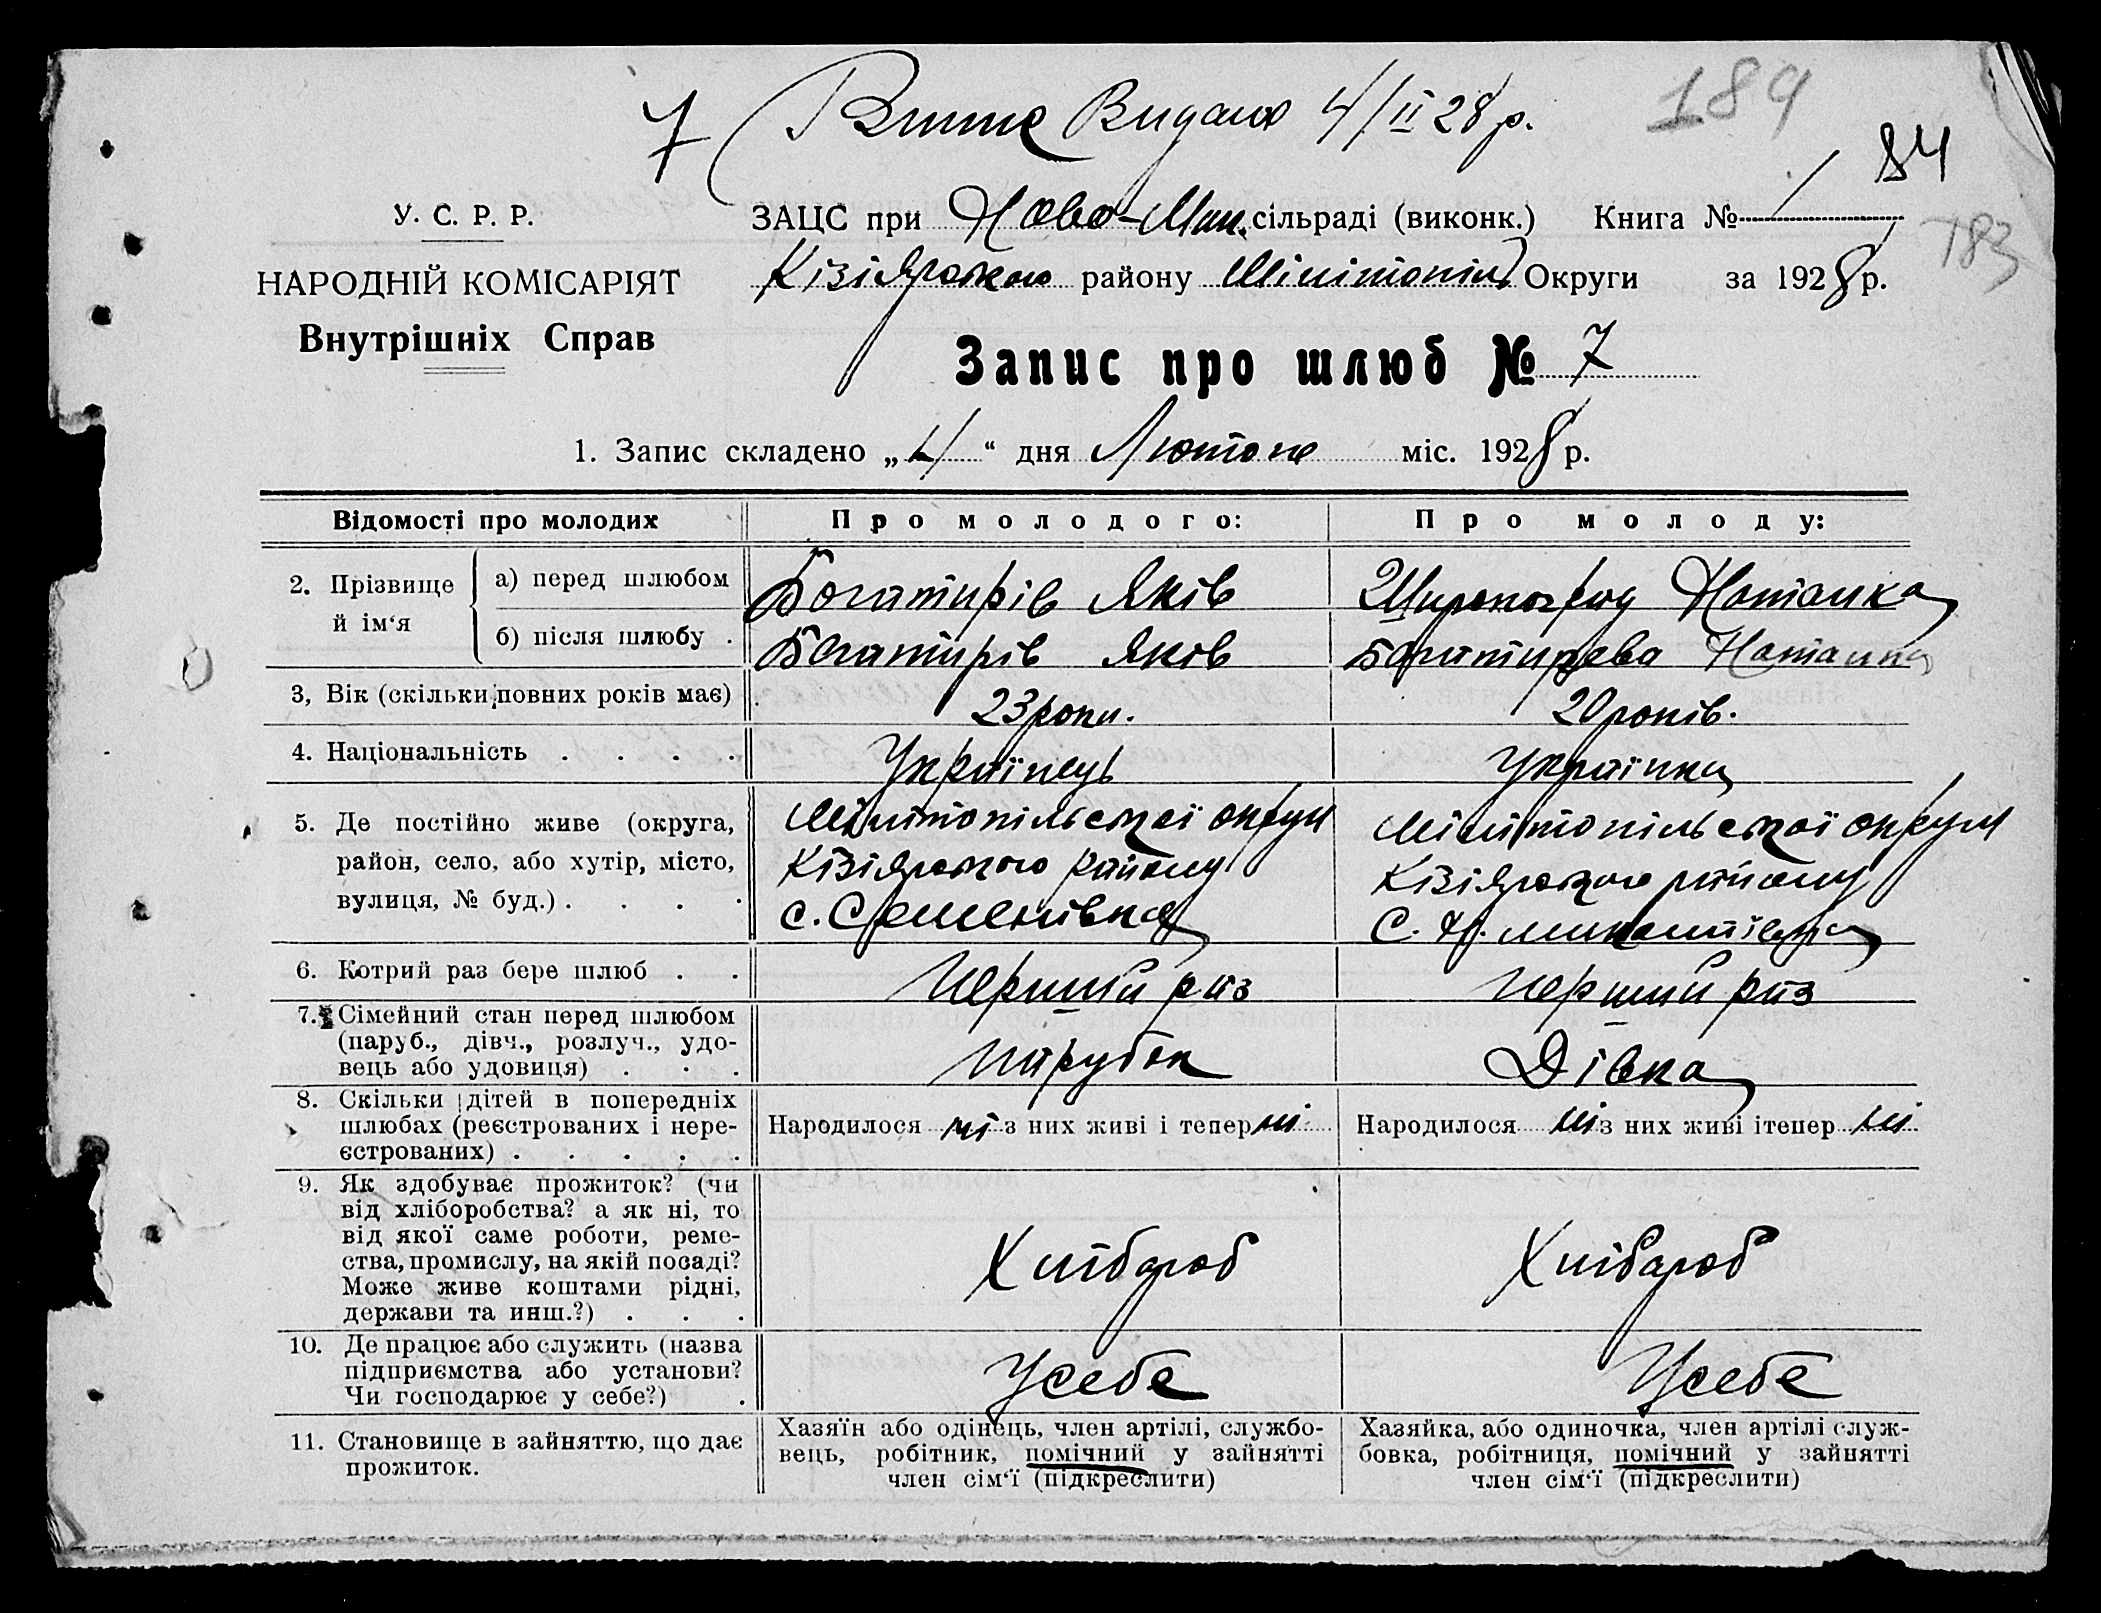 7 Видано 4/II 28 р.
184
84
183
У. С. Р. Р.
НАРОДНІЙ КОМІСАРІЯТ
Внутрішніх Справ
ЗАЦС при Ново-Мик. сільраді (виконк.) Книга № 1
Кізіярського району Мілітопіль Округи за 1928 р.
Запис про шлюб № 7
1. Запис складено „4“ дня Лютого міс. 1928 р.
Відомості про молодих
Про молодого:
Про молоду:
2. Прізвище й ім‘я
а) перед шлюбом
Богатирів Яків
Широкоград Наталка
б) після шлюбу .
Богатирів Яків
Богатирева Наталка
3, Вік (скільки повних років має)
23 роки.
20 років.
4. Національність . . . .
Українець
Українка
5. Де постійно живе (округа,
район, село, або хутір, місто,
вулиця, № буд.) . . . .
Мілітопільської округи
Кізіярського району
с. Семенівка
Мілітопільської округи
Кізіярського району
с. Н. Миколаївка
6. Котрий раз бере шлюб . .
Перший раз
Перший раз
7. Сімейний стан перед шлюбом
(паруб., дівч., розлуч., удо-
вець або удовиця) . . .
Парубок
Дівка
8. Скільки дітей в попередніх
шлюбах (реєстрованих і нере-
єстрованих) . . . . .
Народилося ні з них живі і тепер ні
Народилося ні з них живі ітепер ні
9. Як здобуває прожиток? (чи
від хліборобства? а як ні, то
від якої саме роботи, реме-
ства, промислу, на якій посаді?
Може живе коштами рідні,
держави та инш.?) . . .
Хлібароб
Хлібароб
10. Де працює або служить (назва
підприємства або установи?
Чи господарює у себе?) .
Усебе
Усебе
11. Становище в зайняттю, що дає
прожиток.
Хазяїн або одінець, член артілі, службо-
вець, робітник, помічний у зайнятті
член сім‘ї (підкреслити)
Хазяйка, або одиночка, член артілі служ-
бовка, робітниця, помічний у зайнятті
член сім‘ї (підкреслити)